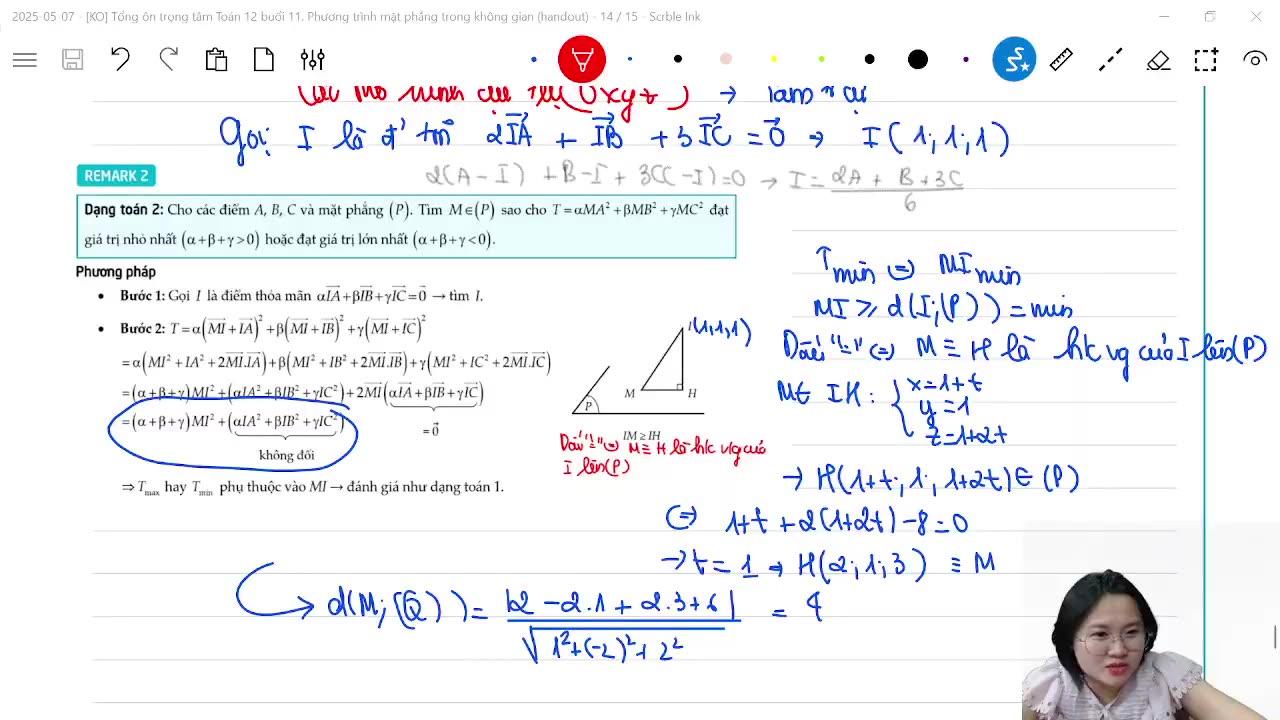 2025-05-07 - [KO] Tổng ôn trọng tâm Toán 12 buổi 11. Phương trình mặt phẳng trong không gian (handout) - 14 / 15 - Scrble Ink
(Oxyz) →
Gọi I là đ' tm 2IA + IB + 3IC = 0 → I(1; 1; 1)
2(A - I) + B - I + 3(C - I) = 0 → I = (2A + B + 3C)/6
REMARK 2
Dạng toán 2: Cho các điểm A, B, C và mặt phẳng (P). Tìm M∈(P) sao cho T = αMA² + βMB² + γMC² đạt
giá trị nhỏ nhất (α+β+γ>0) hoặc đạt giá trị lớn nhất (α+β+γ<0).
Phương pháp
• Bước 1: Gọi I là điểm thỏa mãn αIA + βIB + γIC = 0 → tìm I.
• Bước 2: T = α(MI + IA)² + β(MI + IB)² + γ(MI + IC)²
= α(MI² + IA² + 2MI.IA) + β(MI² + IB² + 2MI.IB) + γ(MI² + IC² + 2MI.IC)
= (α+β+γ)MI² + (αIA² + βIB² + γIC²) + 2MI(αIA + βIB + γIC)
= (α+β+γ)MI² + (αIA² + βIB² + γIC²)
= 0
không đổi
⇒ Tmax hay Tmin phụ thuộc vào MI → đánh giá như dạng toán 1.
I(1,1,1)
M
H
P
IM ≥ IH
Dấu "=" ⇔ M ≡ H là h/c vg của
I lên (P)
Tmin ⇔ MI min
MI ≥ d(I;(P)) = min
Dấu "=" ⇔ M ≡ H là h/c vg của I lên (P)
IH: { x = 1+t
y = 1
z = 1+2t
→ H(1+t; 1; 1+2t) ∈ (P)
⇔ 1+t + 2(1+2t) - 8 = 0
→ t = 1 → H(2; 1; 3) ≡ M
d(M; (Q)) = |2 - 2.1 + 2.3 + 6| / √(1² + (-2)² + 2²) = 4